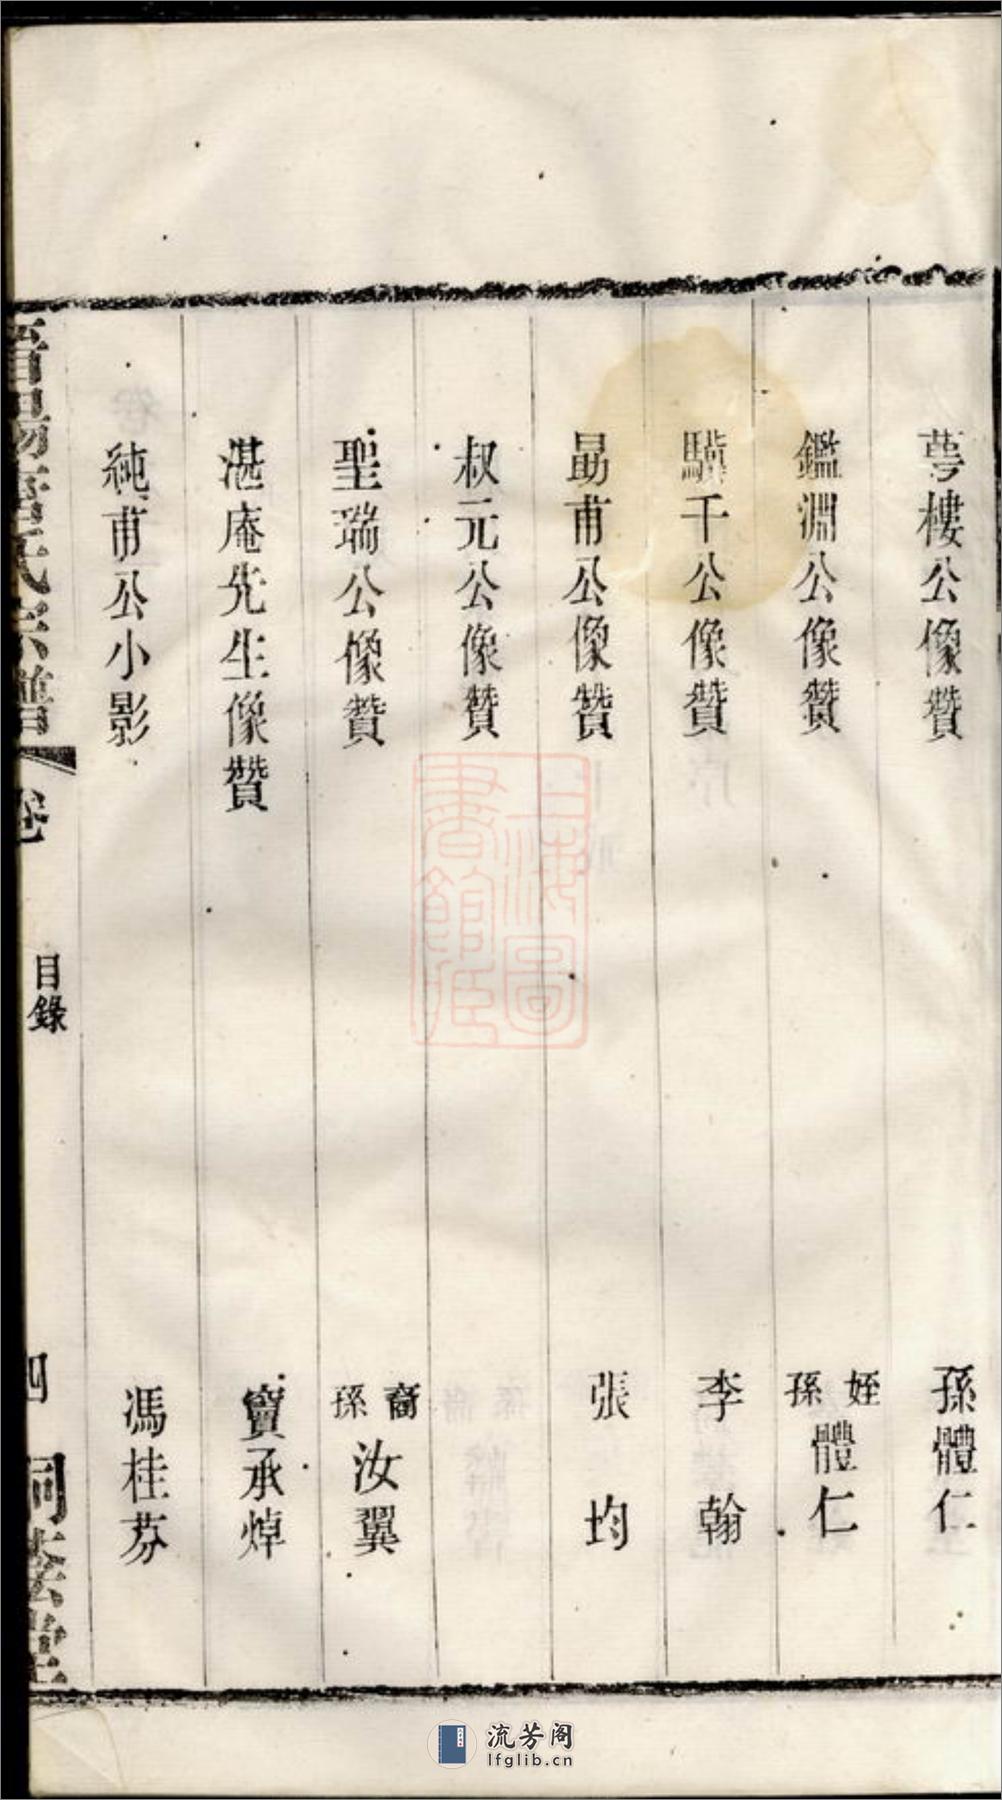 萼樓公像贊 孫體仁
鑑淵公像贊 姪孫體仁
驥千公像贊 李翰
勗甫公像贊 張均
叔元公像贊
聖瑞公像贊 裔孫汝翼
湛庵先生像贊 竇承焯
純甫公小影 馮桂芬
氏宗譜 卷 目錄 四
上海圖書館藏
流芳阁
lfglib.cn